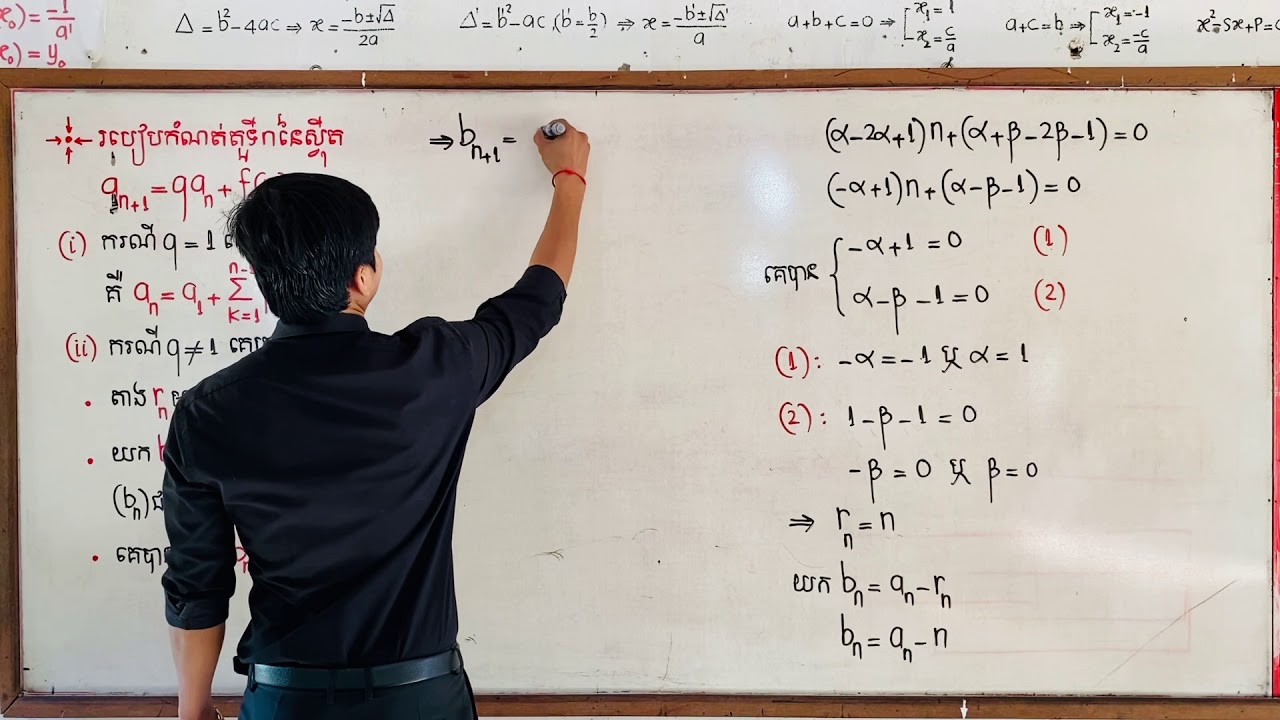 x₀) = -1/a'
x₀) = y₀
Δ = b² - 4ac ⇒ x = (-b±√Δ)/2a
Δ' = b'² - ac , (b' = b/2) ⇒ x = (-b'±√Δ')/a
a + b + c = 0 ⇒ [x₁ = 1
x₂ = c/a
a + c = b ⇒ [x₁ = -1
x₂ = -c/a
x² - Sx + P =
របៀបកំណត់តួទី n នៃស្វ៊ីត
aₙ₊₁ = qaₙ + f(
(i) ករណី q = 1
គឺ aₙ = a₁ + Σ k=1
(ii) ករណី q ≠ 1
• តាង rₙ
• យក
(bₙ)
• គេបាន
⇒ bₙ₊₁ =
(α-2α+1)n + (α+β-2β-1) = 0
(-α+1)n + (α-β-1) = 0
គេបាន { -α+1 = 0 (1)
α-β-1 = 0 (2)
(1) : -α = -1 ឬ α = 1
(2) : 1-β-1 = 0
-β = 0 ឬ β = 0
⇒ rₙ = n
យក bₙ = aₙ - rₙ
bₙ = aₙ - n